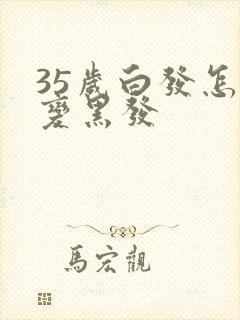 35歲白發怎
變黑發
馬宏觀